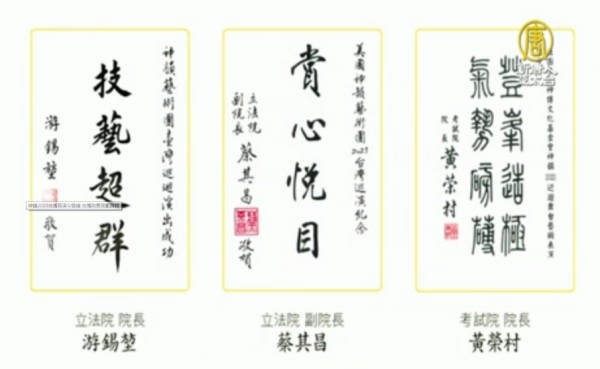 神韻藝術團臺灣巡迴演出成功
技藝超群
游錫堃
敬賀
美國神韻藝術團2023台灣巡演紀念
賞心悅目
立法院
副院長
蔡其昌
敬賀
登峯造極
氣勢磅礡
考試院
院長
黃榮村
唐
新唐人
亞太台
立法院 院長
游錫堃
立法院 副院長
蔡其昌
考試院 院長
黃榮村